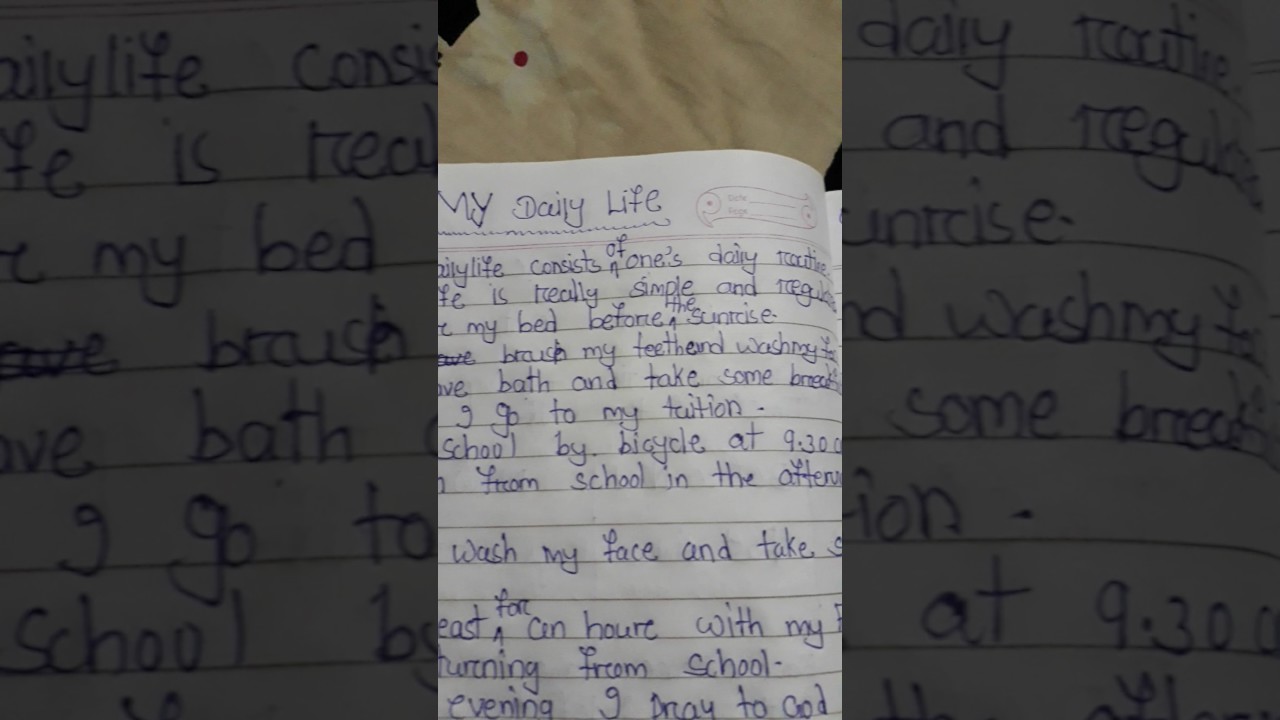 MY Daily Life
Date
Page
ailylife consists of one's daily routine.
fe is really simple and regul
e my bed before the sunrise.
brush my teeth and wash my fa
ave bath and take some break
I go to my tuition.
school by. bicycle at 9.30
from school in the aftern
wash my face and take s
east for an hour with my
turning from school.
evening I pray to God